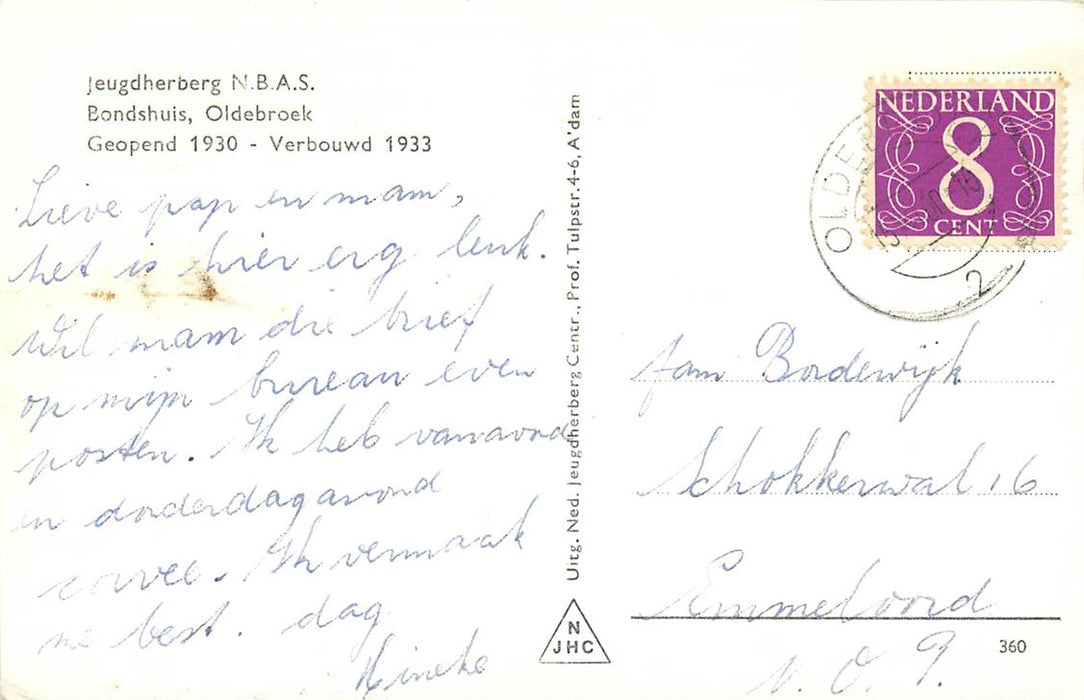 Jeugdherberg N.B.A.S.
Bondshuis, Oldebroek
Geopend 1930 - Verbouwd 1933
Lieve pap en mam,
het is hier erg leuk.
Wil mam die brief
op mijn bureau even
posten. Ik heb vanavond
en donderdagavond
corvee. Ik vermaak
me best. dag
Hineke
Uitg. Ned. Jeugdherberg Centr., Prof. Tulpstr. 4-6, A'dam
N
JHC
NEDERLAND
8
CENT
2
fam Bordewijk
Schokkerwal 16
Emmeloord
N.O.P.
360